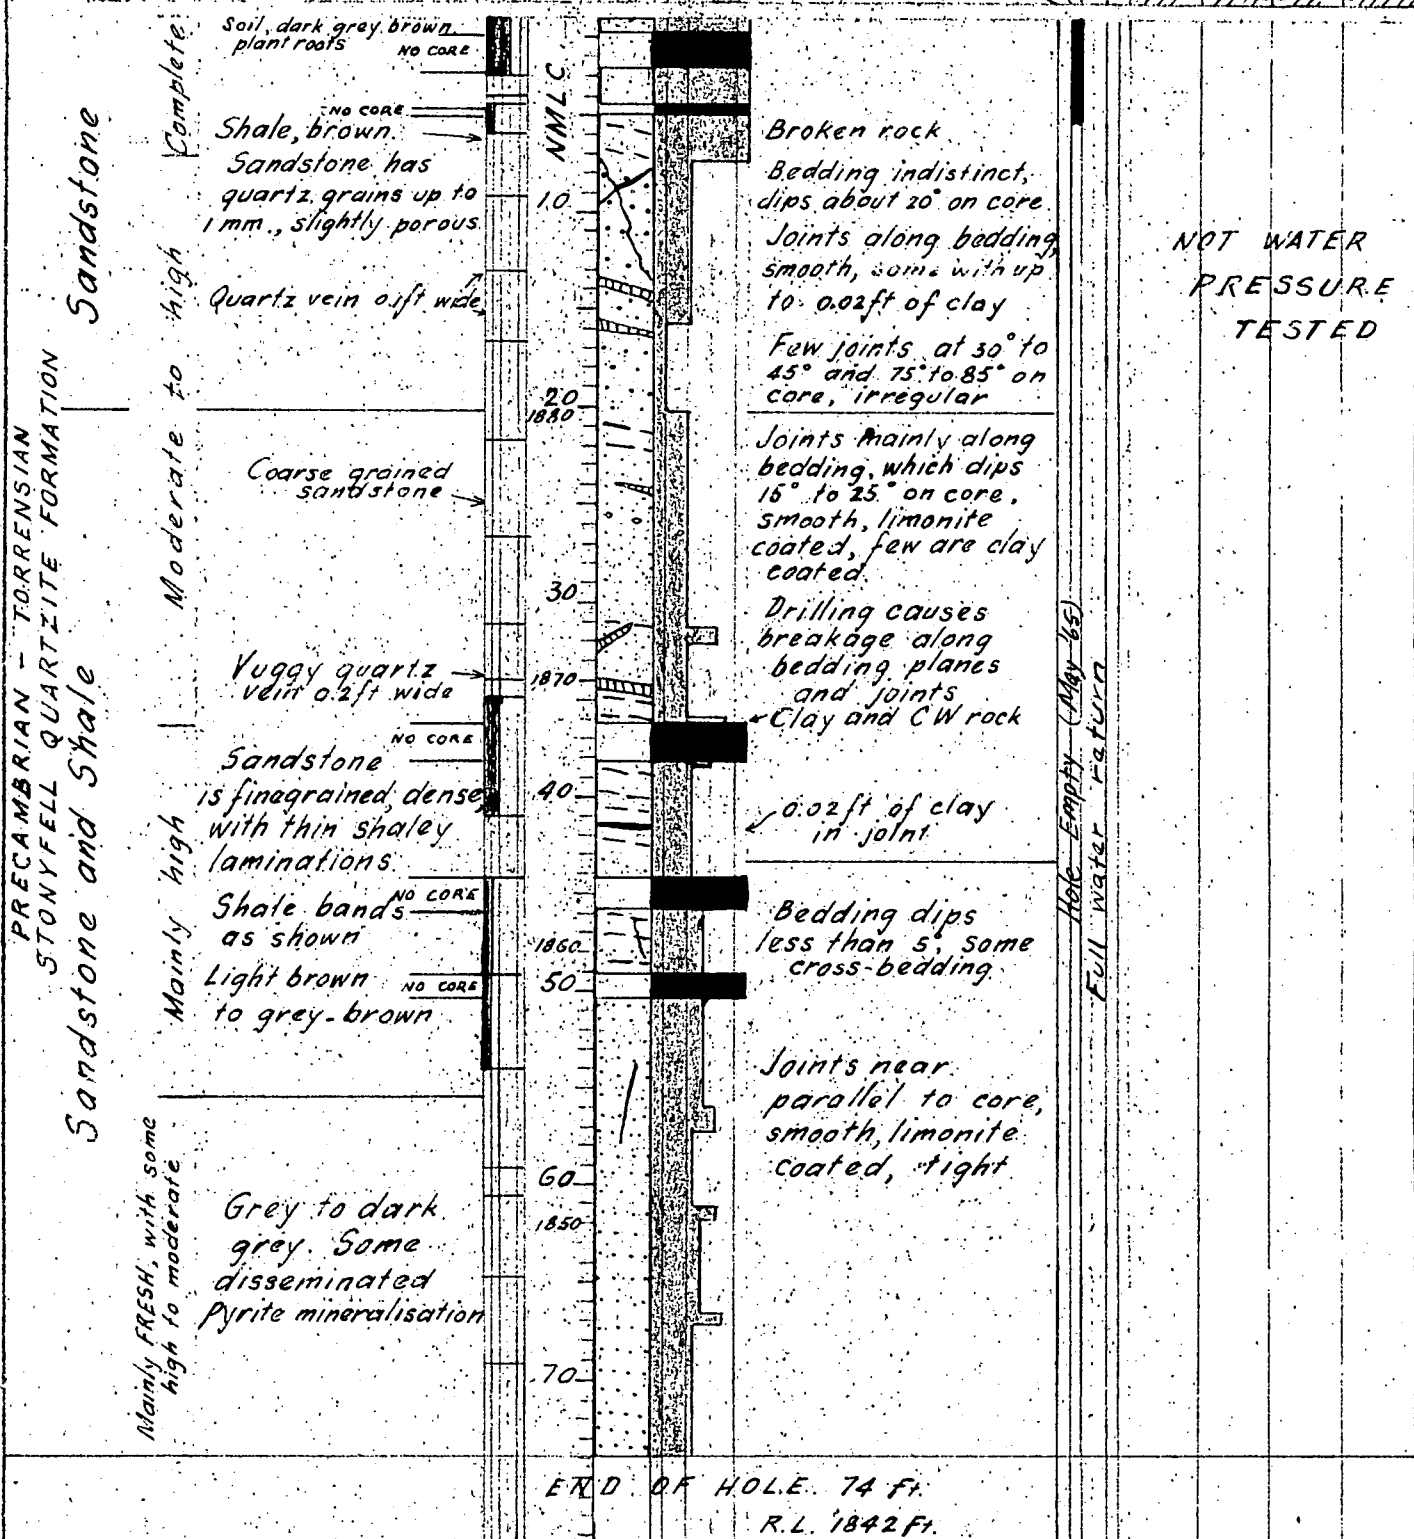 PRECAMBRIAN - TORRENSIAN
STONYFELL QUARTZITE FORMATION
Sandstone
Sandstone and Shale
Complete
Moderate to high
Mainly high
Mainly FRESH, with some
high to moderate
Soil, dark grey brown
plant roots
NO CORE
NO CORE
Shale, brown
Sandstone has
quartz grains up to
1 mm., slightly porous
Quartz vein 0.1ft wide
Coarse grained
sandstone
Vuggy quartz
vein 0.2ft wide
NO CORE
Sandstone
is finegrained, dense,
with thin shaley
laminations.
NO CORE
Shale bands
as shown
Light brown
NO CORE
to grey-brown
Grey to dark
grey. Some
disseminated
Pyrite mineralisation
NMLC
10
20
1880
30
1870
40
1860
50
60
1850
70
Broken rock
Bedding indistinct,
dips about 20° on core.
Joints along bedding,
smooth, some with up
to 0.02ft of clay
Few joints at 30° to
45° and 75° to 85° on
core, irregular
Joints mainly along
bedding, which dips
15° to 25° on core,
smooth, limonite
coated, few are clay
coated.
Drilling causes
breakage along
bedding planes
and joints
Clay and CW rock
0.02ft of clay
in joint
Bedding dips
less than 5°, some
cross-bedding
Joints near
parallel to core,
smooth, limonite
coated, tight
Hole Empty (May '65)
Full water return
NOT WATER
PRESSURE
TESTED
END OF HOLE 74 Ft.
R.L. 1842 Ft.